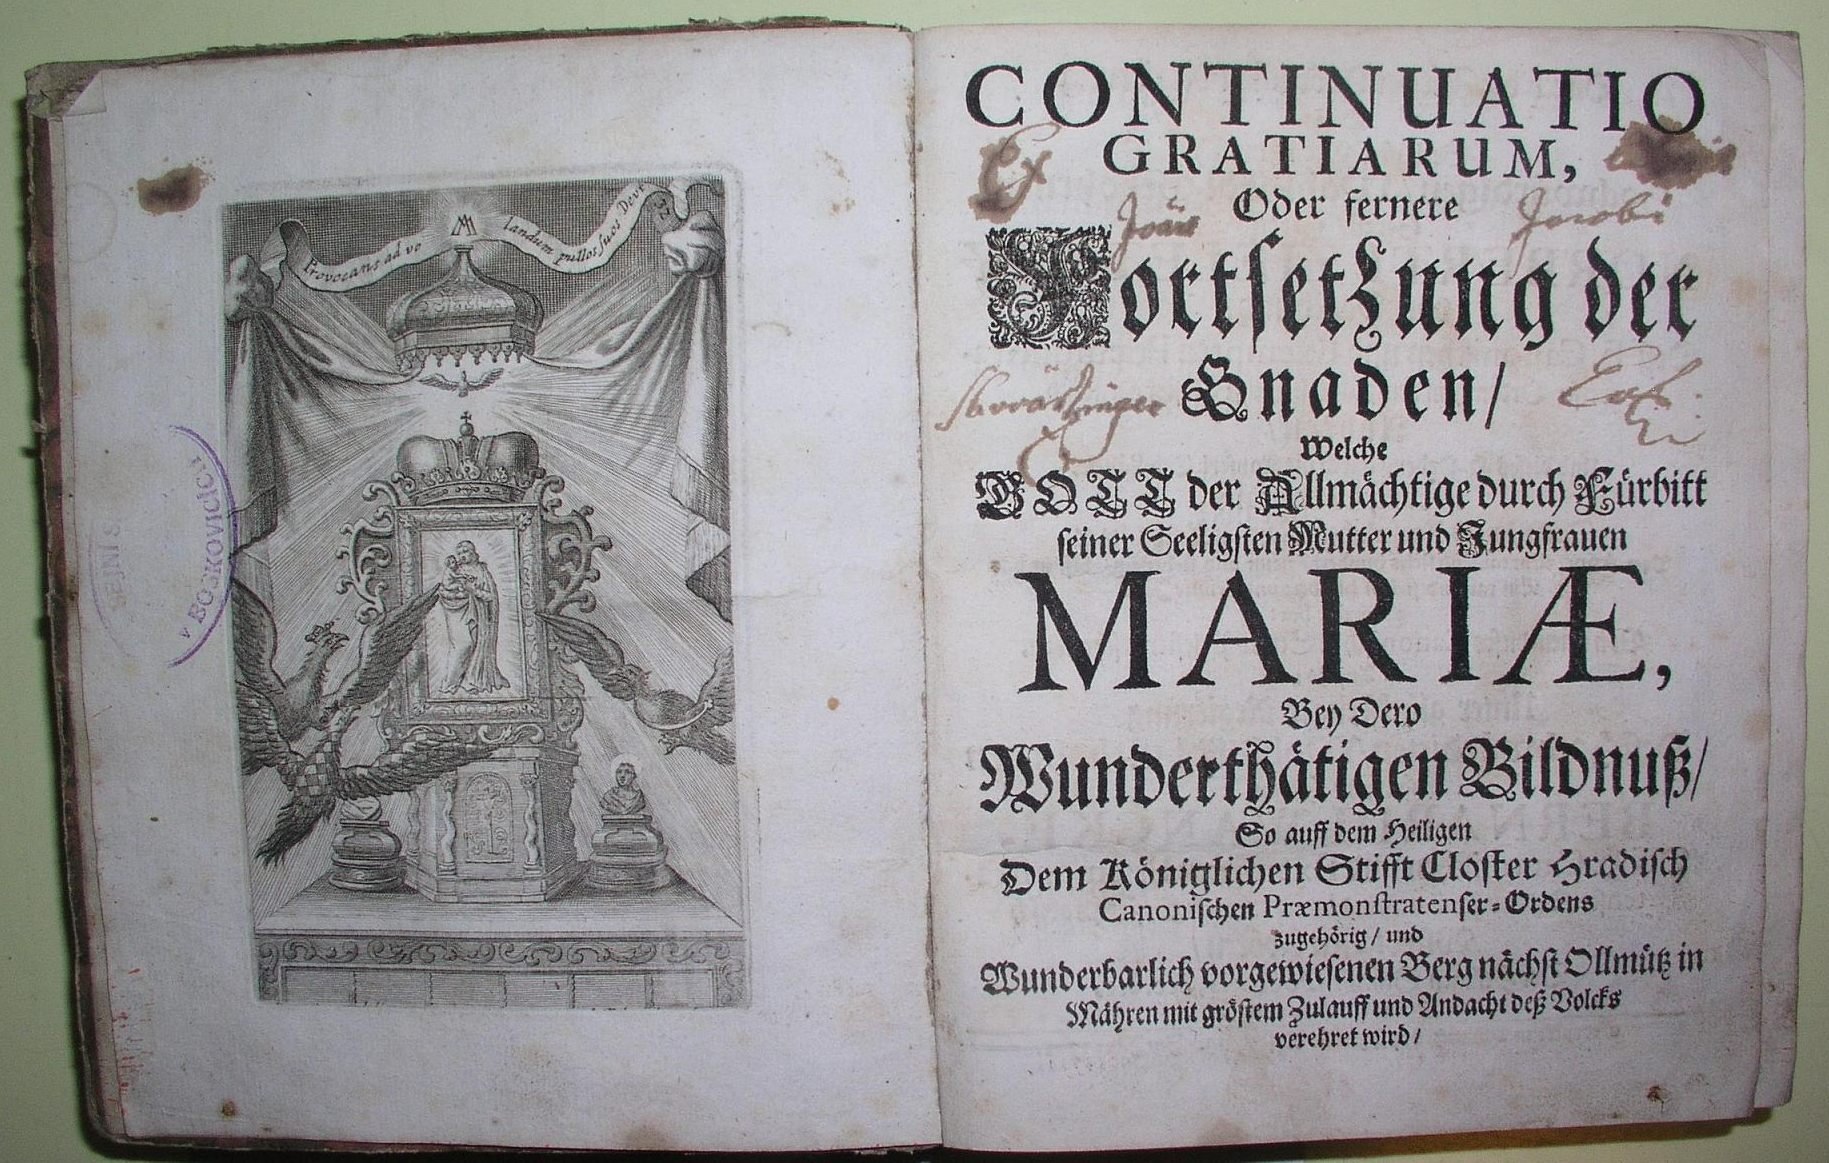 Provocans ad vo
landum pullos suos Deut
M
v BOSKOVICÍCH
CONTINUATIO
GRATIARUM,
Ex
Oder fernere
Joan
Jacobi
Fortsetzung der
Gnaden/
Welche
GOTT der Allmächtige durch Fürbitt
seiner Seeligsten Mutter und Jungfrauen
MARIÆ,
Bey Dero
Wunderthätigen Bildnuß/
So auff dem Heiligen
Dem Königlichen Stifft Closter Hradisch
Canonischen Præmonstratenser-Ordens
zugehörig/ und
Wunderbarlich vorgewiesenen Berg nächst Ollmütz in
Mähren mit gröstem Zulauff und Andacht deß Volcks
verehret wird/